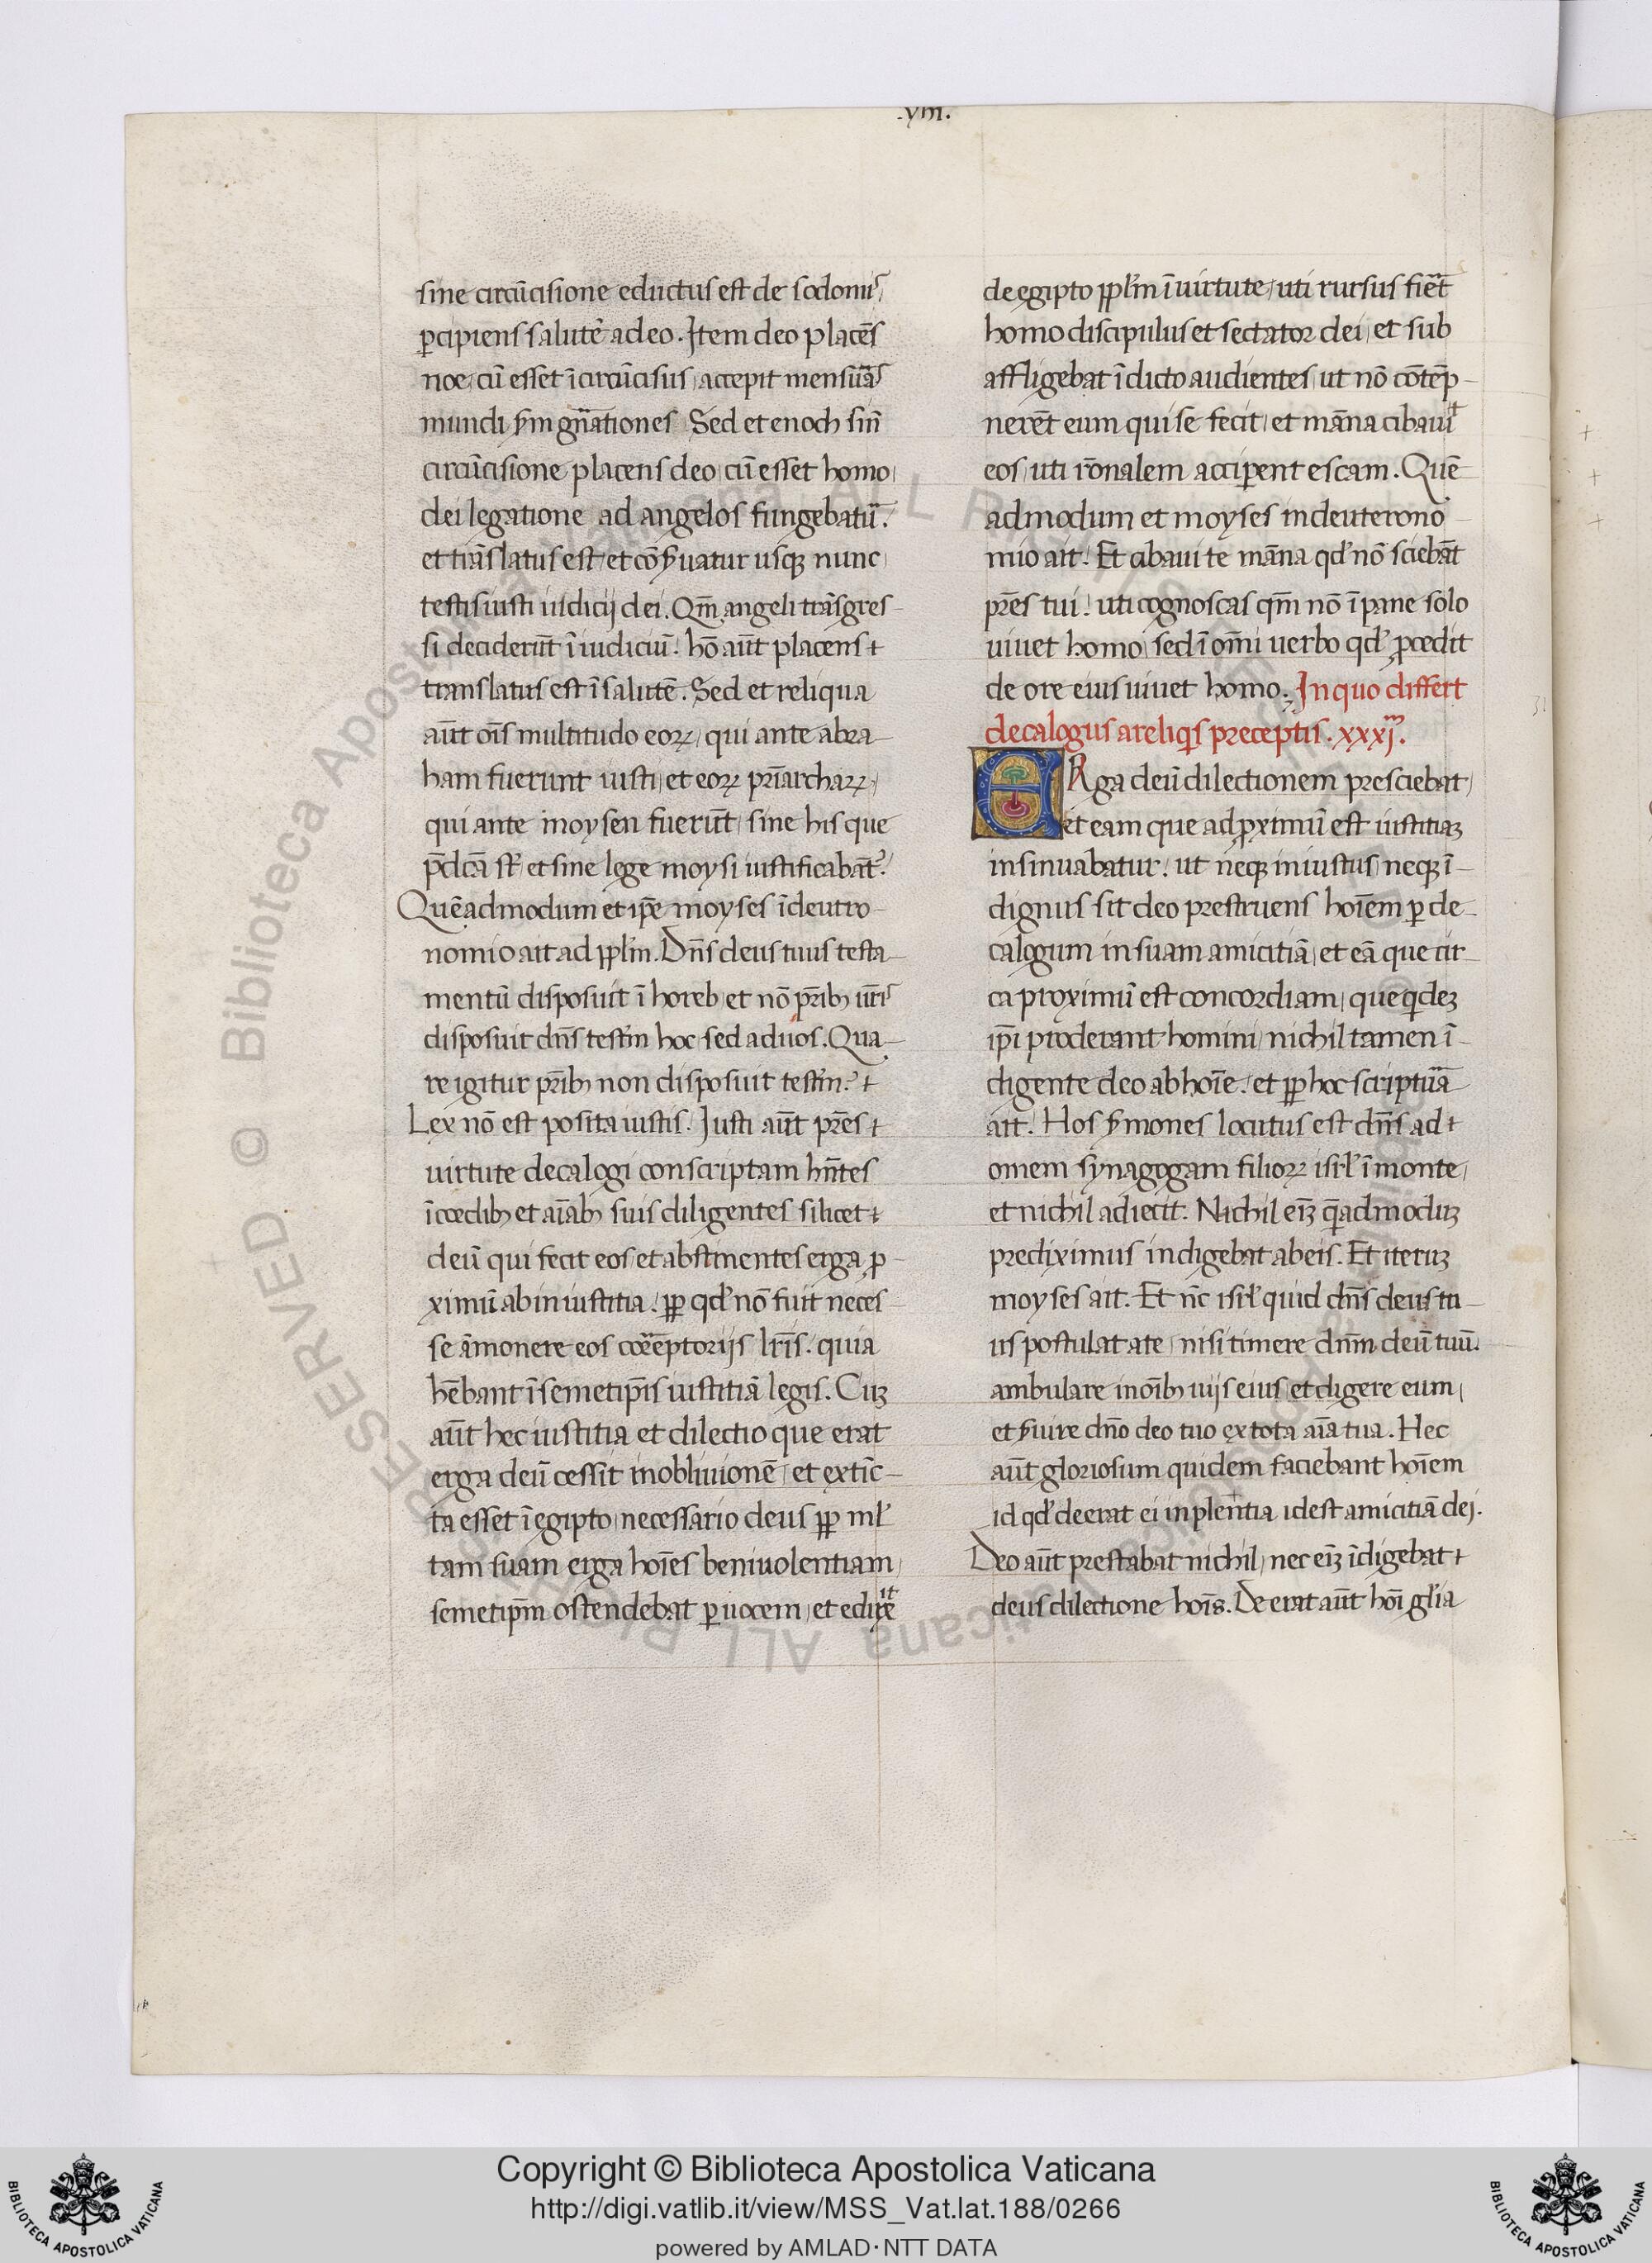 .viii.
sine circūcisione eductus est de sodomis,
ꝑcipiens salutē a deo. Item deo placēs
noe, cū esset īcircūcisus, accepit mensuras
mundi
Sed et enoch sine
circūcisione placens deo, cū esset homo,
dei legatione ad angelos fungebatur.
et trāslatus est et cōẜuatur usqꝫ nunc,
testis iusti iudicij dei. Qm̄ angeli trāsgres-
si deciderūt ī iudiciū. hō aūt placens
translatus est ī salutē. Sed et reliqua
aūt oīs multitudo eoꝝ, qui ante abra-
ham fuerunt iusti, et eoꝝ pr̄iarchaꝝ,
qui ante moysen fuerūt, sine his que
p̄dcā st̄, et sine lege moysi iustificabāt᷑.
Quēadmodum et ip̄e moyses ī deutro-
nomio ait ad ppl̄m. Dn̄s deus tuus testa-
mentū disposuit ī horeb, et nō pr̄ibꝫ ur̄is
disposuit dn̄s testm̄ hoc, sed ad uos. Qua-
re igitur pr̄ibꝫ non disposuit testm̄?
Lex nō est posita iustis. Iusti aūt pr̄es
uirtute decalogi conscriptam hn̄tes
ī cordibꝫ et aīabꝫ suis diligentes silicet
deū qui fecit eos, et abstinentes erga ꝓ-
ximū ab iniustitia. ꝓp qd̕ nō fuit neces-
se āmonere eos correptorijs lr̄is. quia
hēbant ī semetip̄is iustitiā legis. Cuꝫ
aūt hec iustitia et dilectio que erat
erga deū cessit in obliuionē, et extīc-
ta esset ī egipto, necessario deus ꝓp ml̕-
tam suam erga hoīes beniuolentiam,
semetip̄m ostendebat ꝑ uocem, et eduxit
de egipto ppl̄m ī uirtute, uti rursus fieret
homo discipulus et sectator dei, et sub
affligebat ī dicto audientes, ut nō cōtēp-
nerēt eum qui se fecit, et māna cibauit
eos, uti rōnalem acciperent escam. Quē
admodum et moyses in deuterono-
mio ait. Et cibaui te māna qd̕ nō sciebāt
pr̄es tui. uti cognoscas qm̄ nō ī pane solo
uiuet homo, sed ī omī uerbo qd̕ ꝓcedit
de ore eius uiuet homo. In quo differt
decalogus a reliqis preceptis. xxxjm.
ERga deū dilectionem presciebat,
et eam que ad ꝓximū est iustitiaꝫ
insinuabatur. ut neqꝫ iniustus, neqꝫ ī-
dignus sit deo prestruens hoīem ꝑ de-
calogum in suam amicitiā, et eā que cir-
ca proximū est concordiam, que qdeꝫ
ip̄i proderant homini, nichil tamen ī-
digente deo ab hoīe. et ꝓp hoc scriptura
ait. Hos ẜmones locutus est dn̄s ad
omem synagogam filioꝝ isrl̕ ī monte,
et nichil adiecit. Nichil eīꝫ q̄admoduꝫ
prediximus indigebat ab eis. Et iteruꝫ
moyses ait. Et nc̄ isrl̕ quid dn̄s deus tu-
us postulat a te, nisi timere dnm̄ deū tuū.
ambulare in oībꝫ uijs eius, et digere eum,
et ẜuire dn̄o deo tuo ex tota aīa tua. Hec
aūt gloriosum quidem faciebant hoīem
id qd̕ deerat ei inplentia idest amicitiā dei.
Deo aūt prestabat nichil, nec eīꝫ īdigebat
deus dilectione hoīs. Deerat aūt hoī gl̕ia
31
© Biblioteca Apostolica Vaticana ALL RIGHTS RESERVED
Copyright © Biblioteca Apostolica Vaticana
http://digi.vatlib.it/view/MSS_Vat.lat.188/0266
powered by AMLAD·NTT DATA
BIBLIOTECA APOSTOLICA VATICANA
BIBLIOTECA APOSTOLICA VATICANA